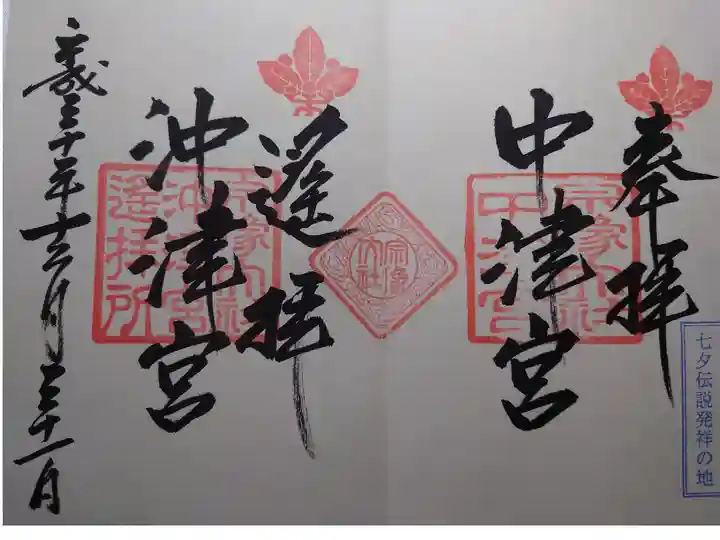 奉拝
中津宮
宗像大社
中津宮
七夕伝説発祥の地
宗像大社
遥拝
沖津宮
宗像大社
沖津宮
遥拝所
平成三十年十二月三十一日